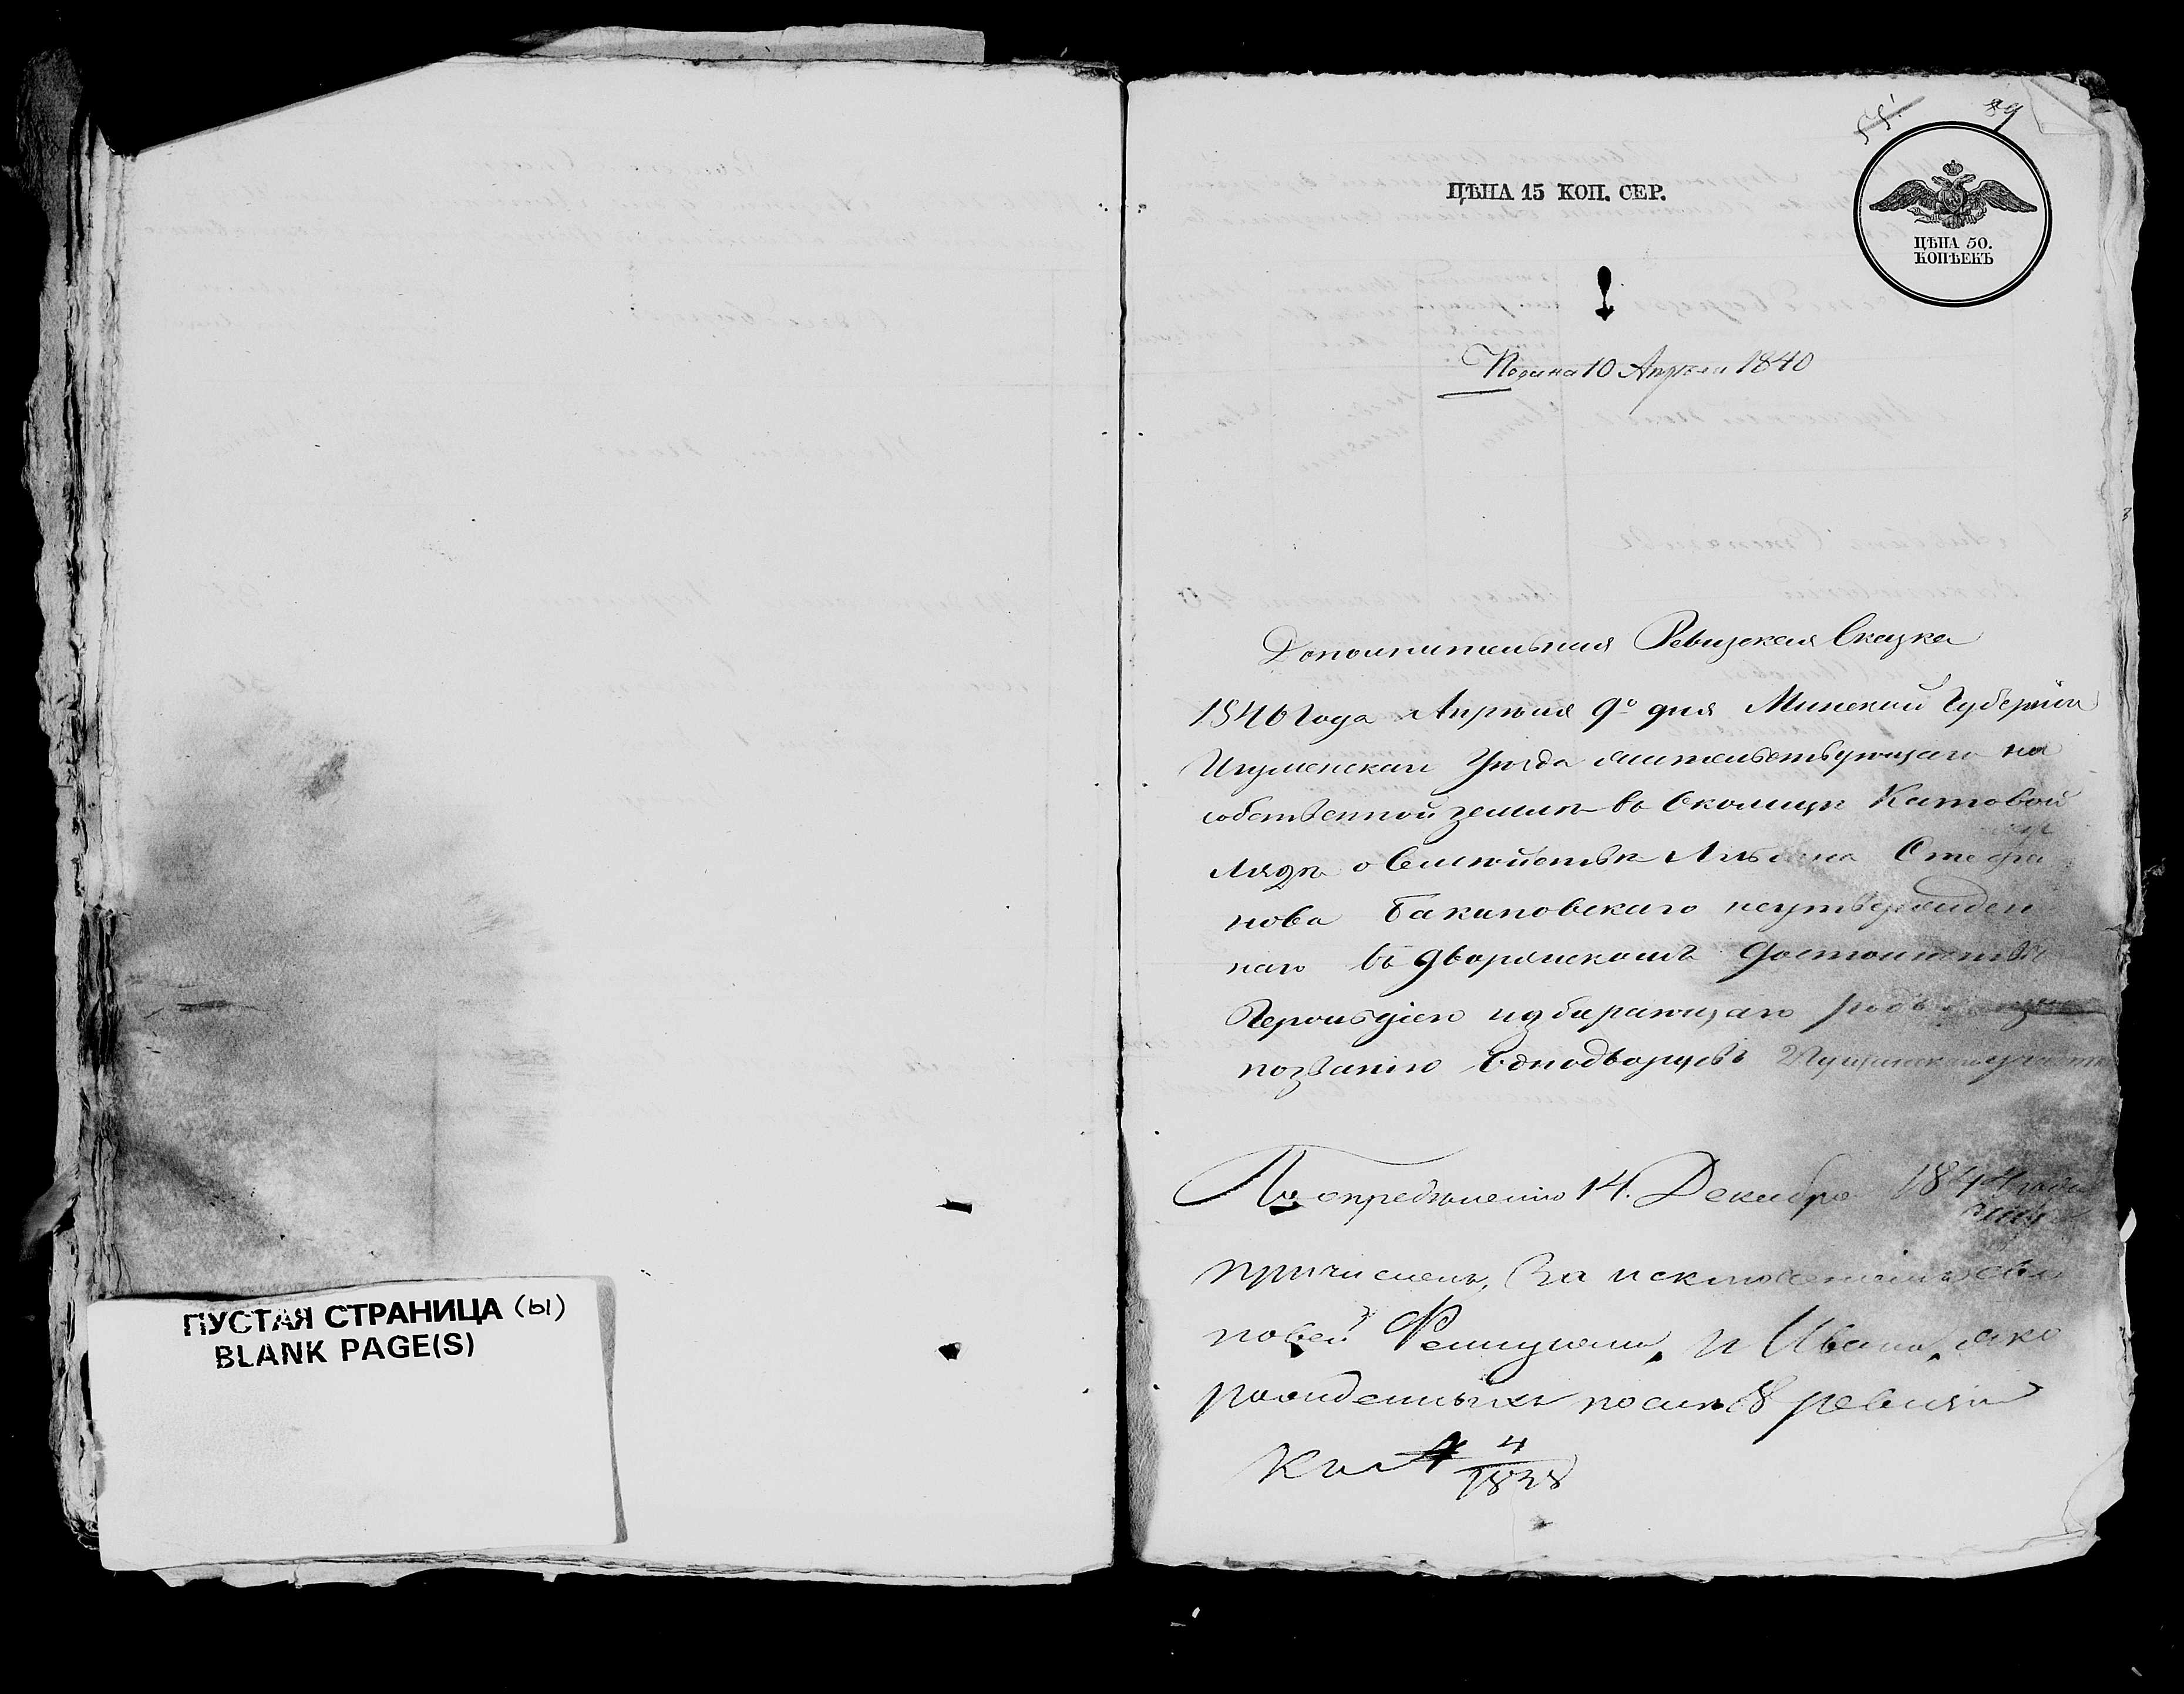 ПУСТАЯ СТРАНИЦА (Ы)
BLANK PAGE(S)
55
89
ЦѢНА 15 КОП. СЕР.
ЦѢНА 50.
КОПѢЕКЪ
Подана 10 Апреля 1840
Дополнительная Ревизская Сказка
1840 Года Апреля 9го дня Минской Губерніи
Игуменскаго Уезда жительствующаго на
собственной земли въ Околицѣ Катовой
Лядѣ о Семействѣ Стефа
нова Бакиновскаго неутвержден
наго въ дворянскомъ достоинствѣ
Герольдіею избирающаго родъ
позванію Однодворцевъ
По определению 14. Декабря 184 года
причисленъ, За исключеніемъ сыно
новей и Ивана, яко
рожденныхъ послѣ 8 ревизіи
4
1838